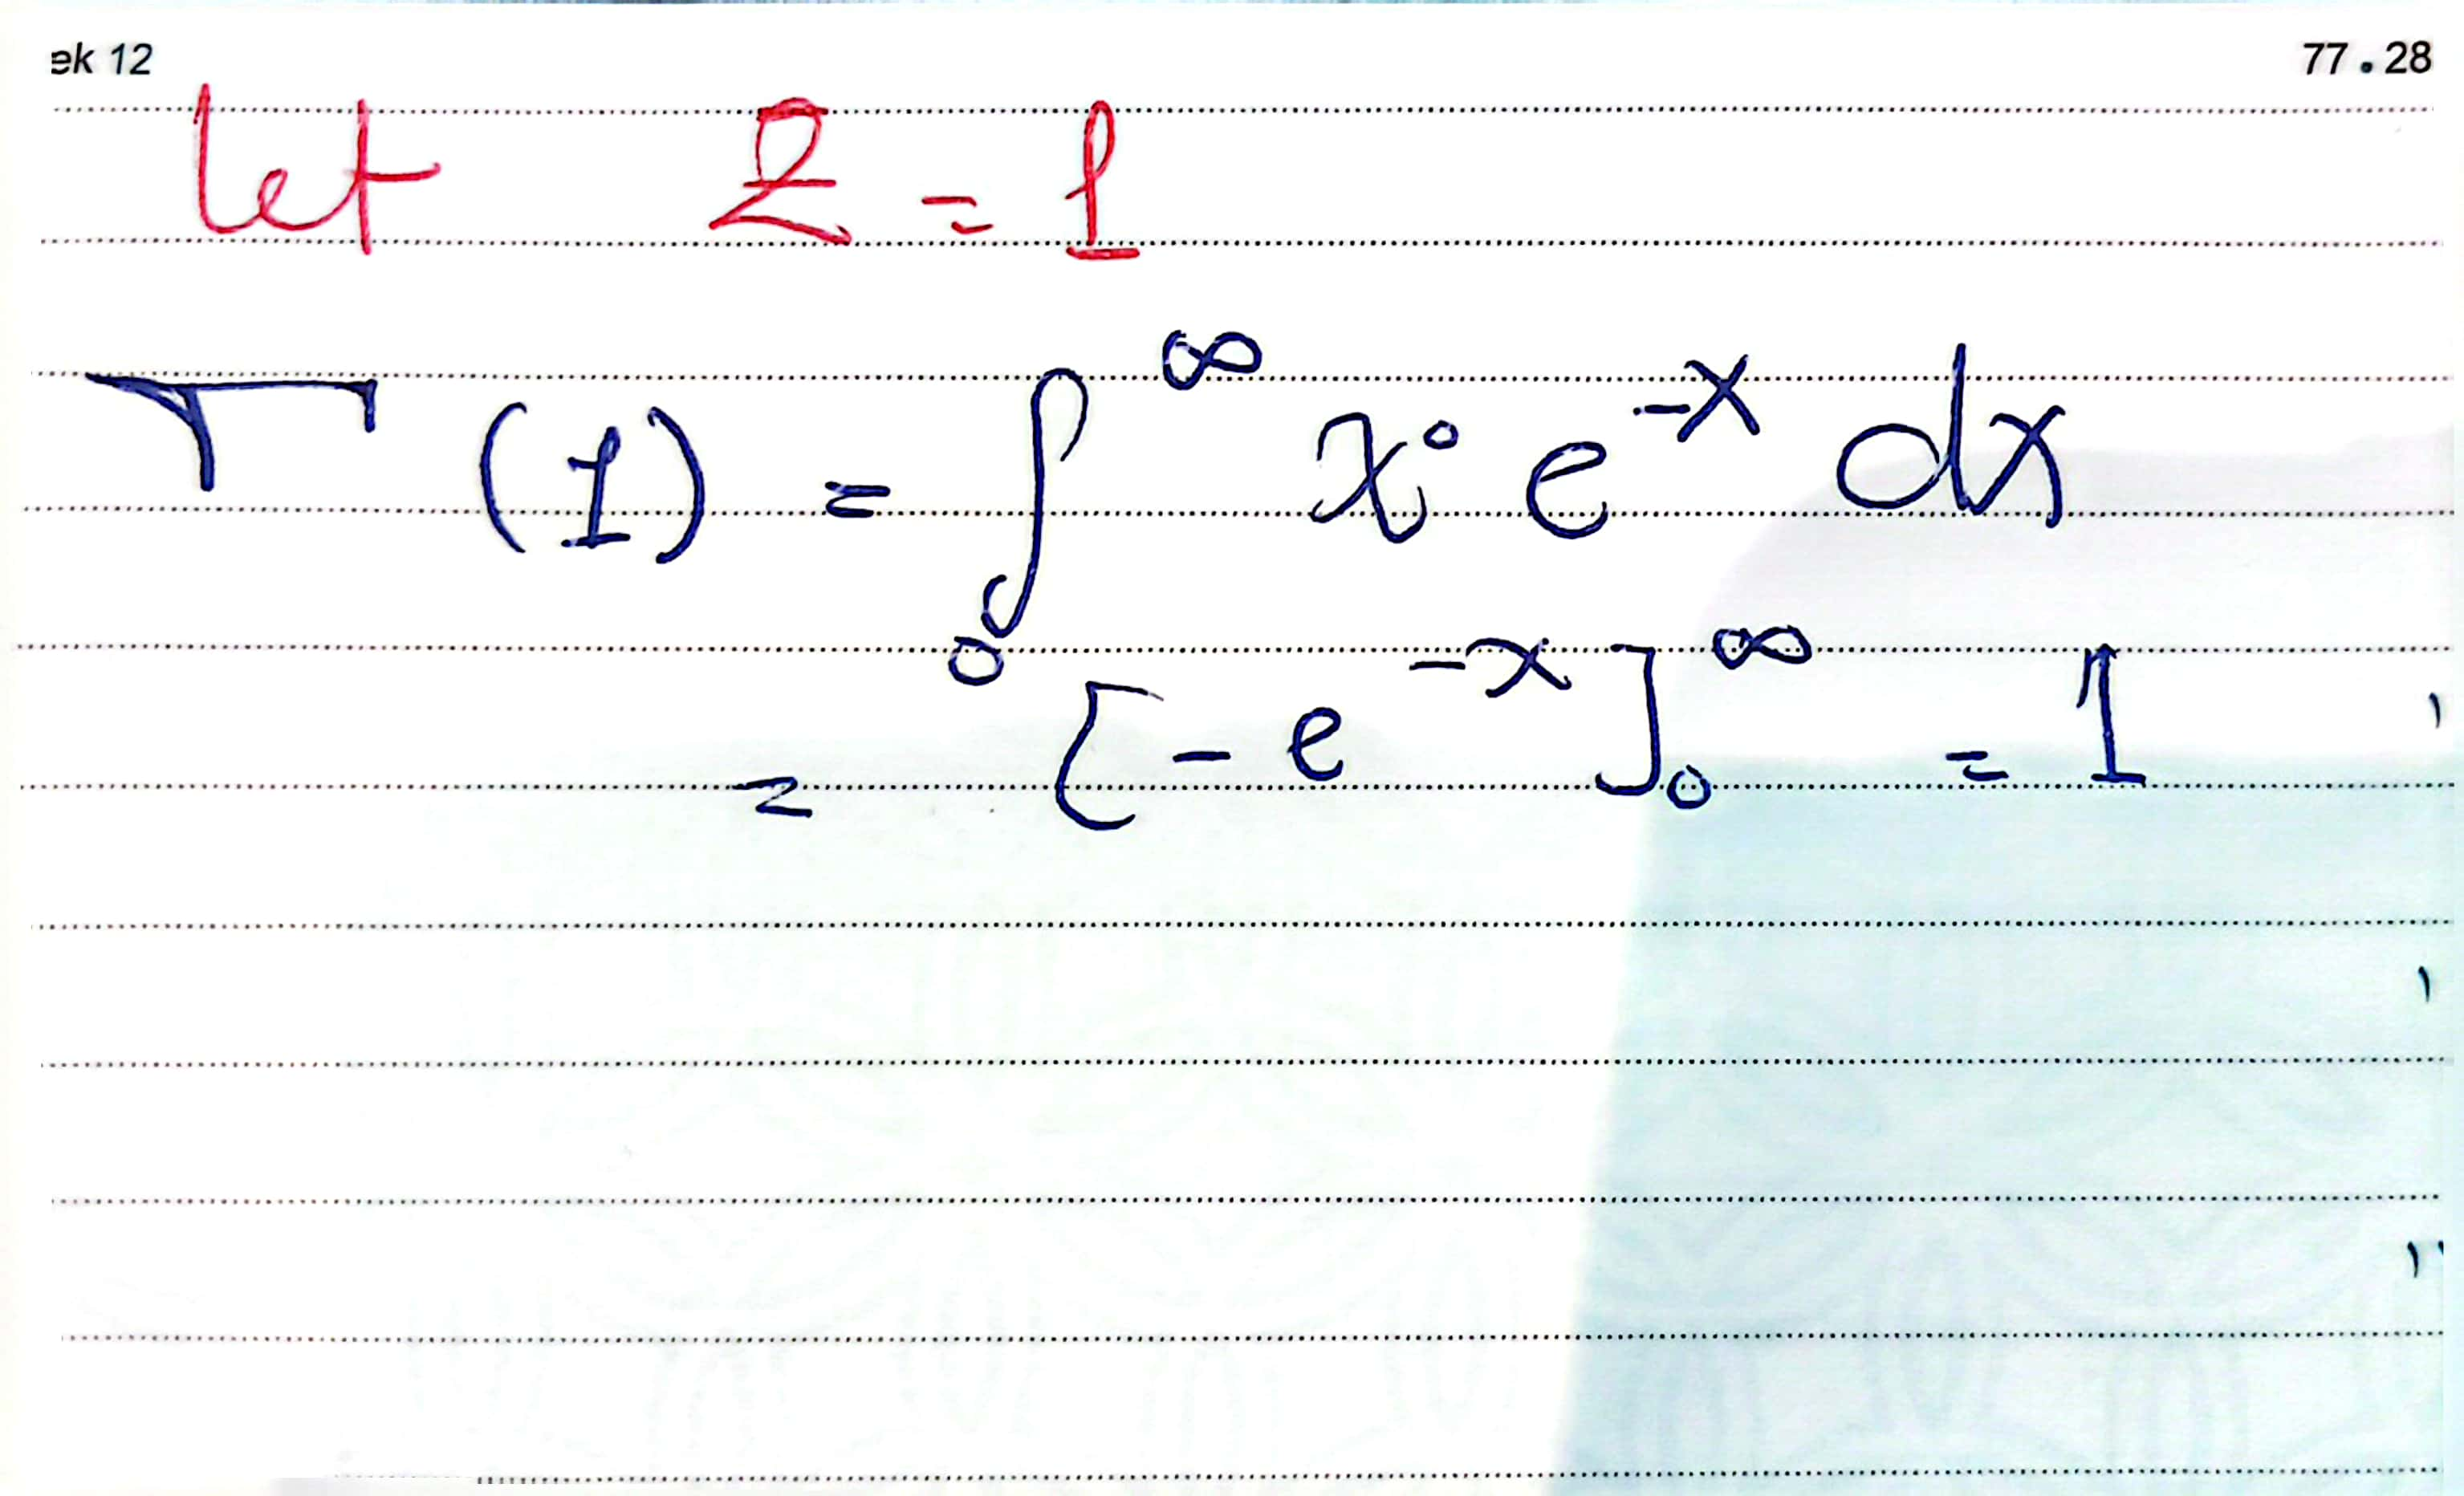 ek 12 77.28
let Z = 1
Γ(1) = ∫₀^∞ x⁰ e^-x dx
= [-e^-x]₀^∞ = 1